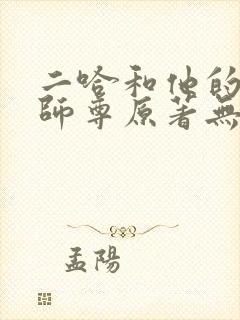 二哈和他的
師尊原著無
孟陽